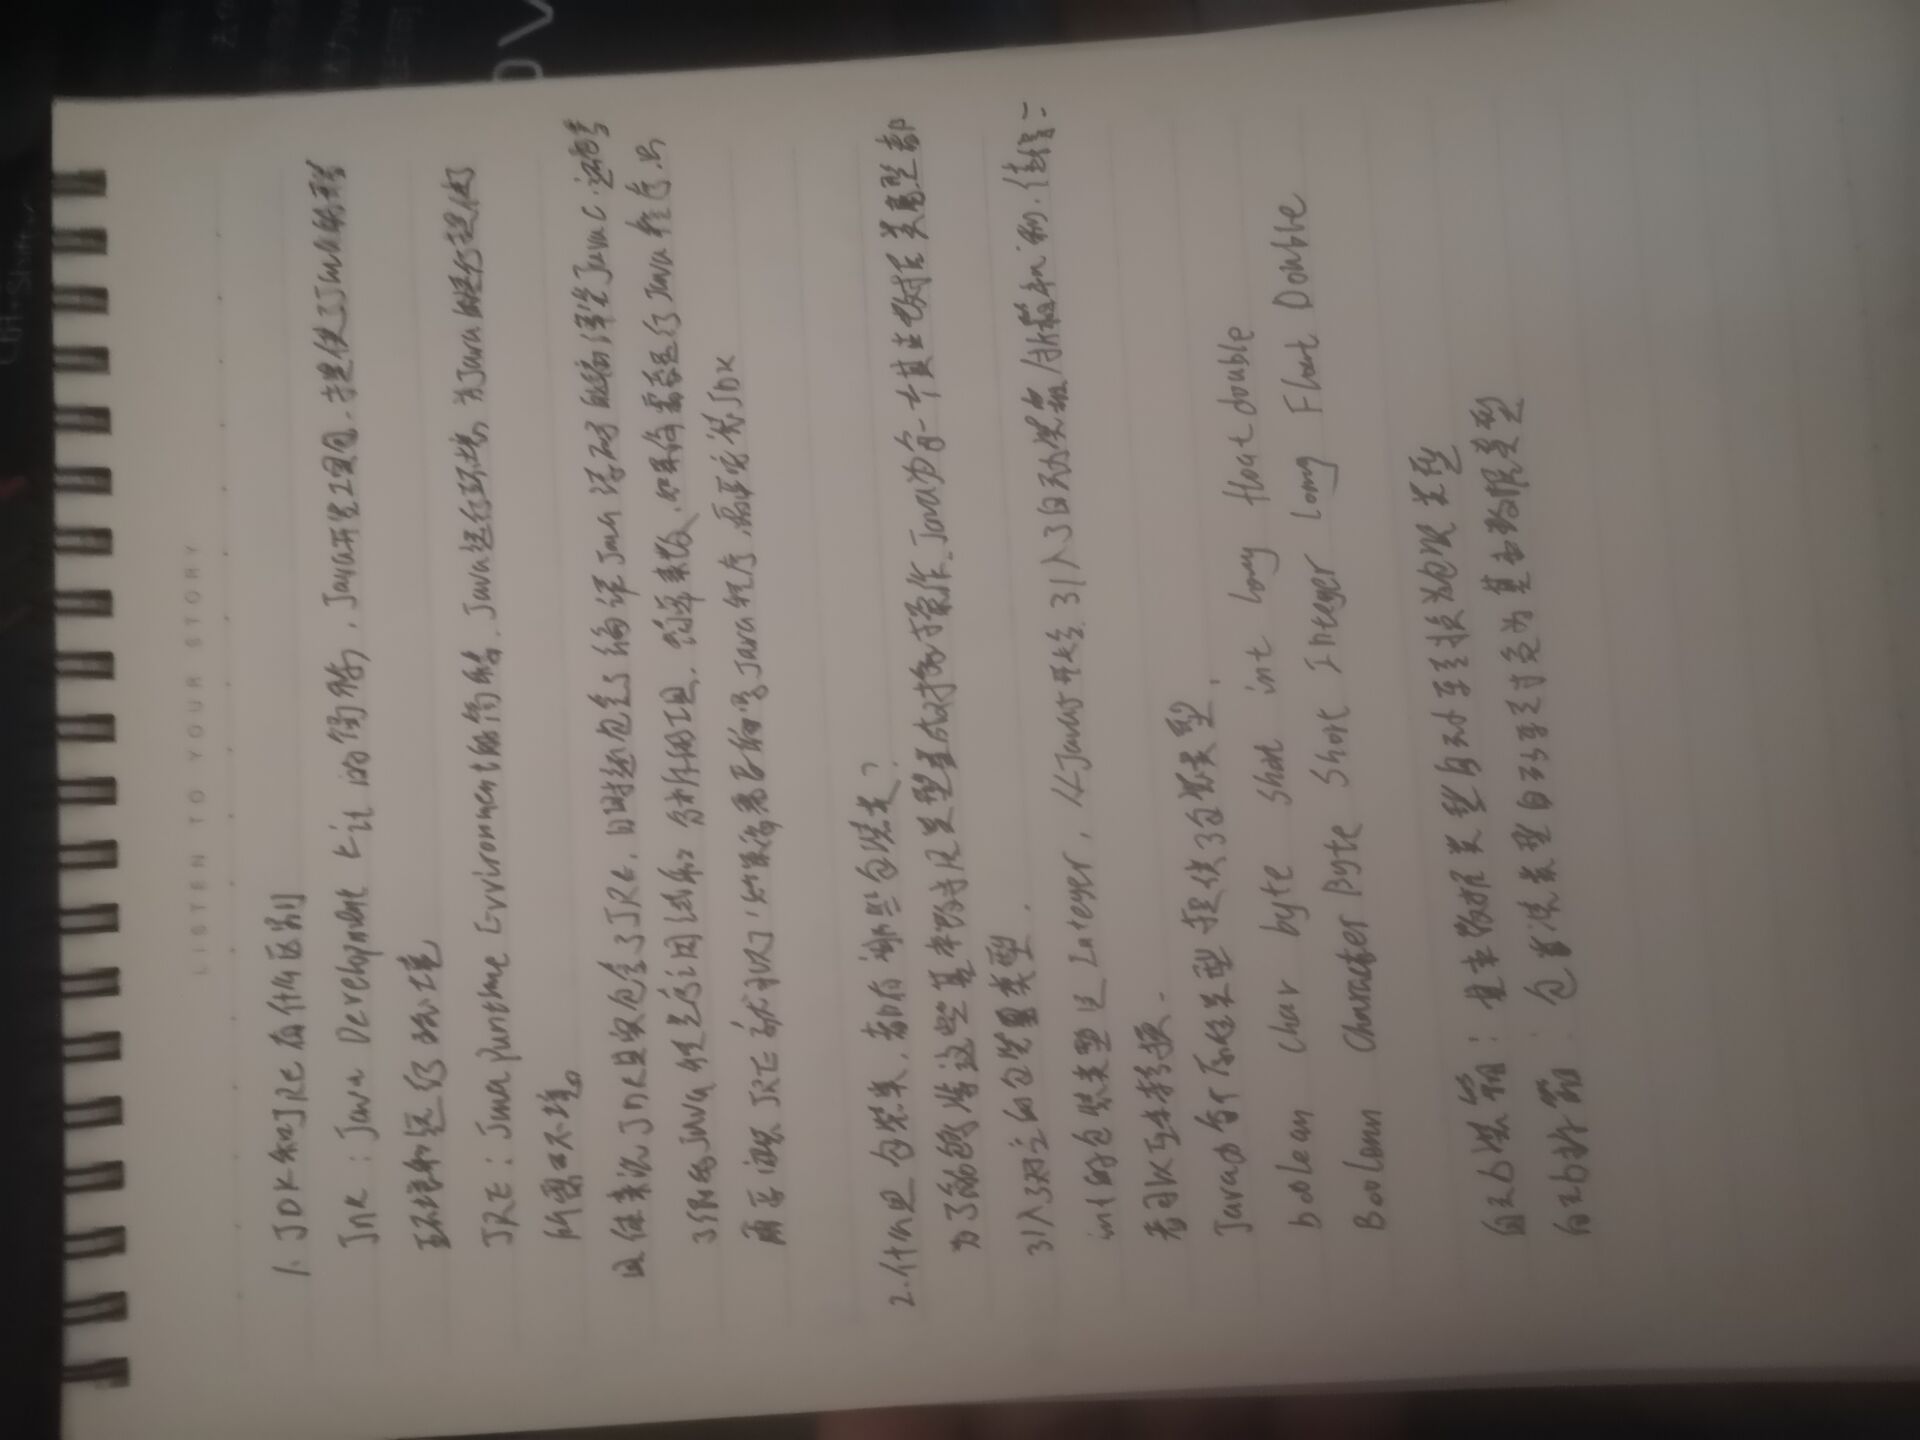 LISTEN TO YOUR STORY
1. JDK和JRE有什么区别
JDK: Java Development Kit 的简称, Java开发工具包. 提供了Java的开发
环境和运行环境
JRE: Java Runtime Environment的简称. Java运行环境, 为Java的运行提供
所需环境。
具体来说 JDK 包含了JRE, 同时还包含了编译Java源码的编译器Javac. 还包含
了很多Java程序调试和分析的工具. 简单来说, 如果你需要运行Java程序, 只
需要安装JRE就可以了, 如果你需要编写Java程序, 需要安装JDK
2. 什么是包装类, 都有哪些包装类?
为了能够将这些基本数据类型当成对象操作. Java为每一个基本数据类型都
引入了对应的包装类型.
int的包装类型是Integer, 从Java5开始引入了自动装箱/拆箱机制. 使得二
者可以互相转换.
Java为每个原始类型提供了包装类型.
boolean char byte short int long float double
Boolean Character Byte Short Integer Long Float Double
自动装箱: 基本数据类型自动转换为包装类型
自动拆箱: 包装类型自动转变为基本数据类型